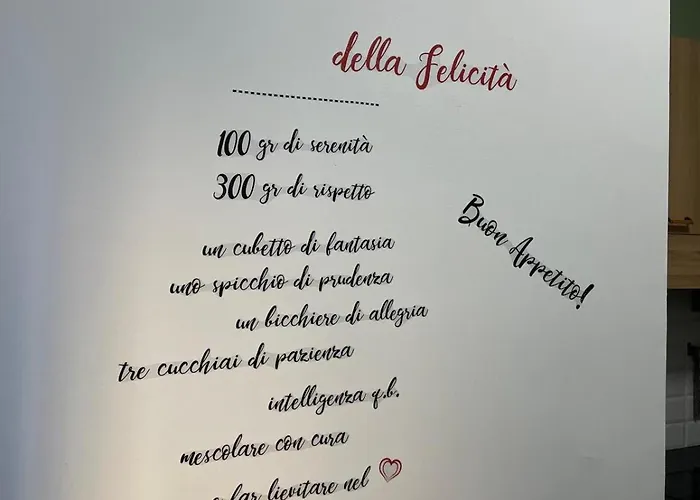 della Felicità
100 gr di serenità
300 gr di rispetto
un cubetto di fantasia
uno spicchio di prudenza
un bicchiere di allegria
tre cucchiai di pazienza
intelligenza q.b.
mescolare con cura
far lievitare nel
Buon Appetito!